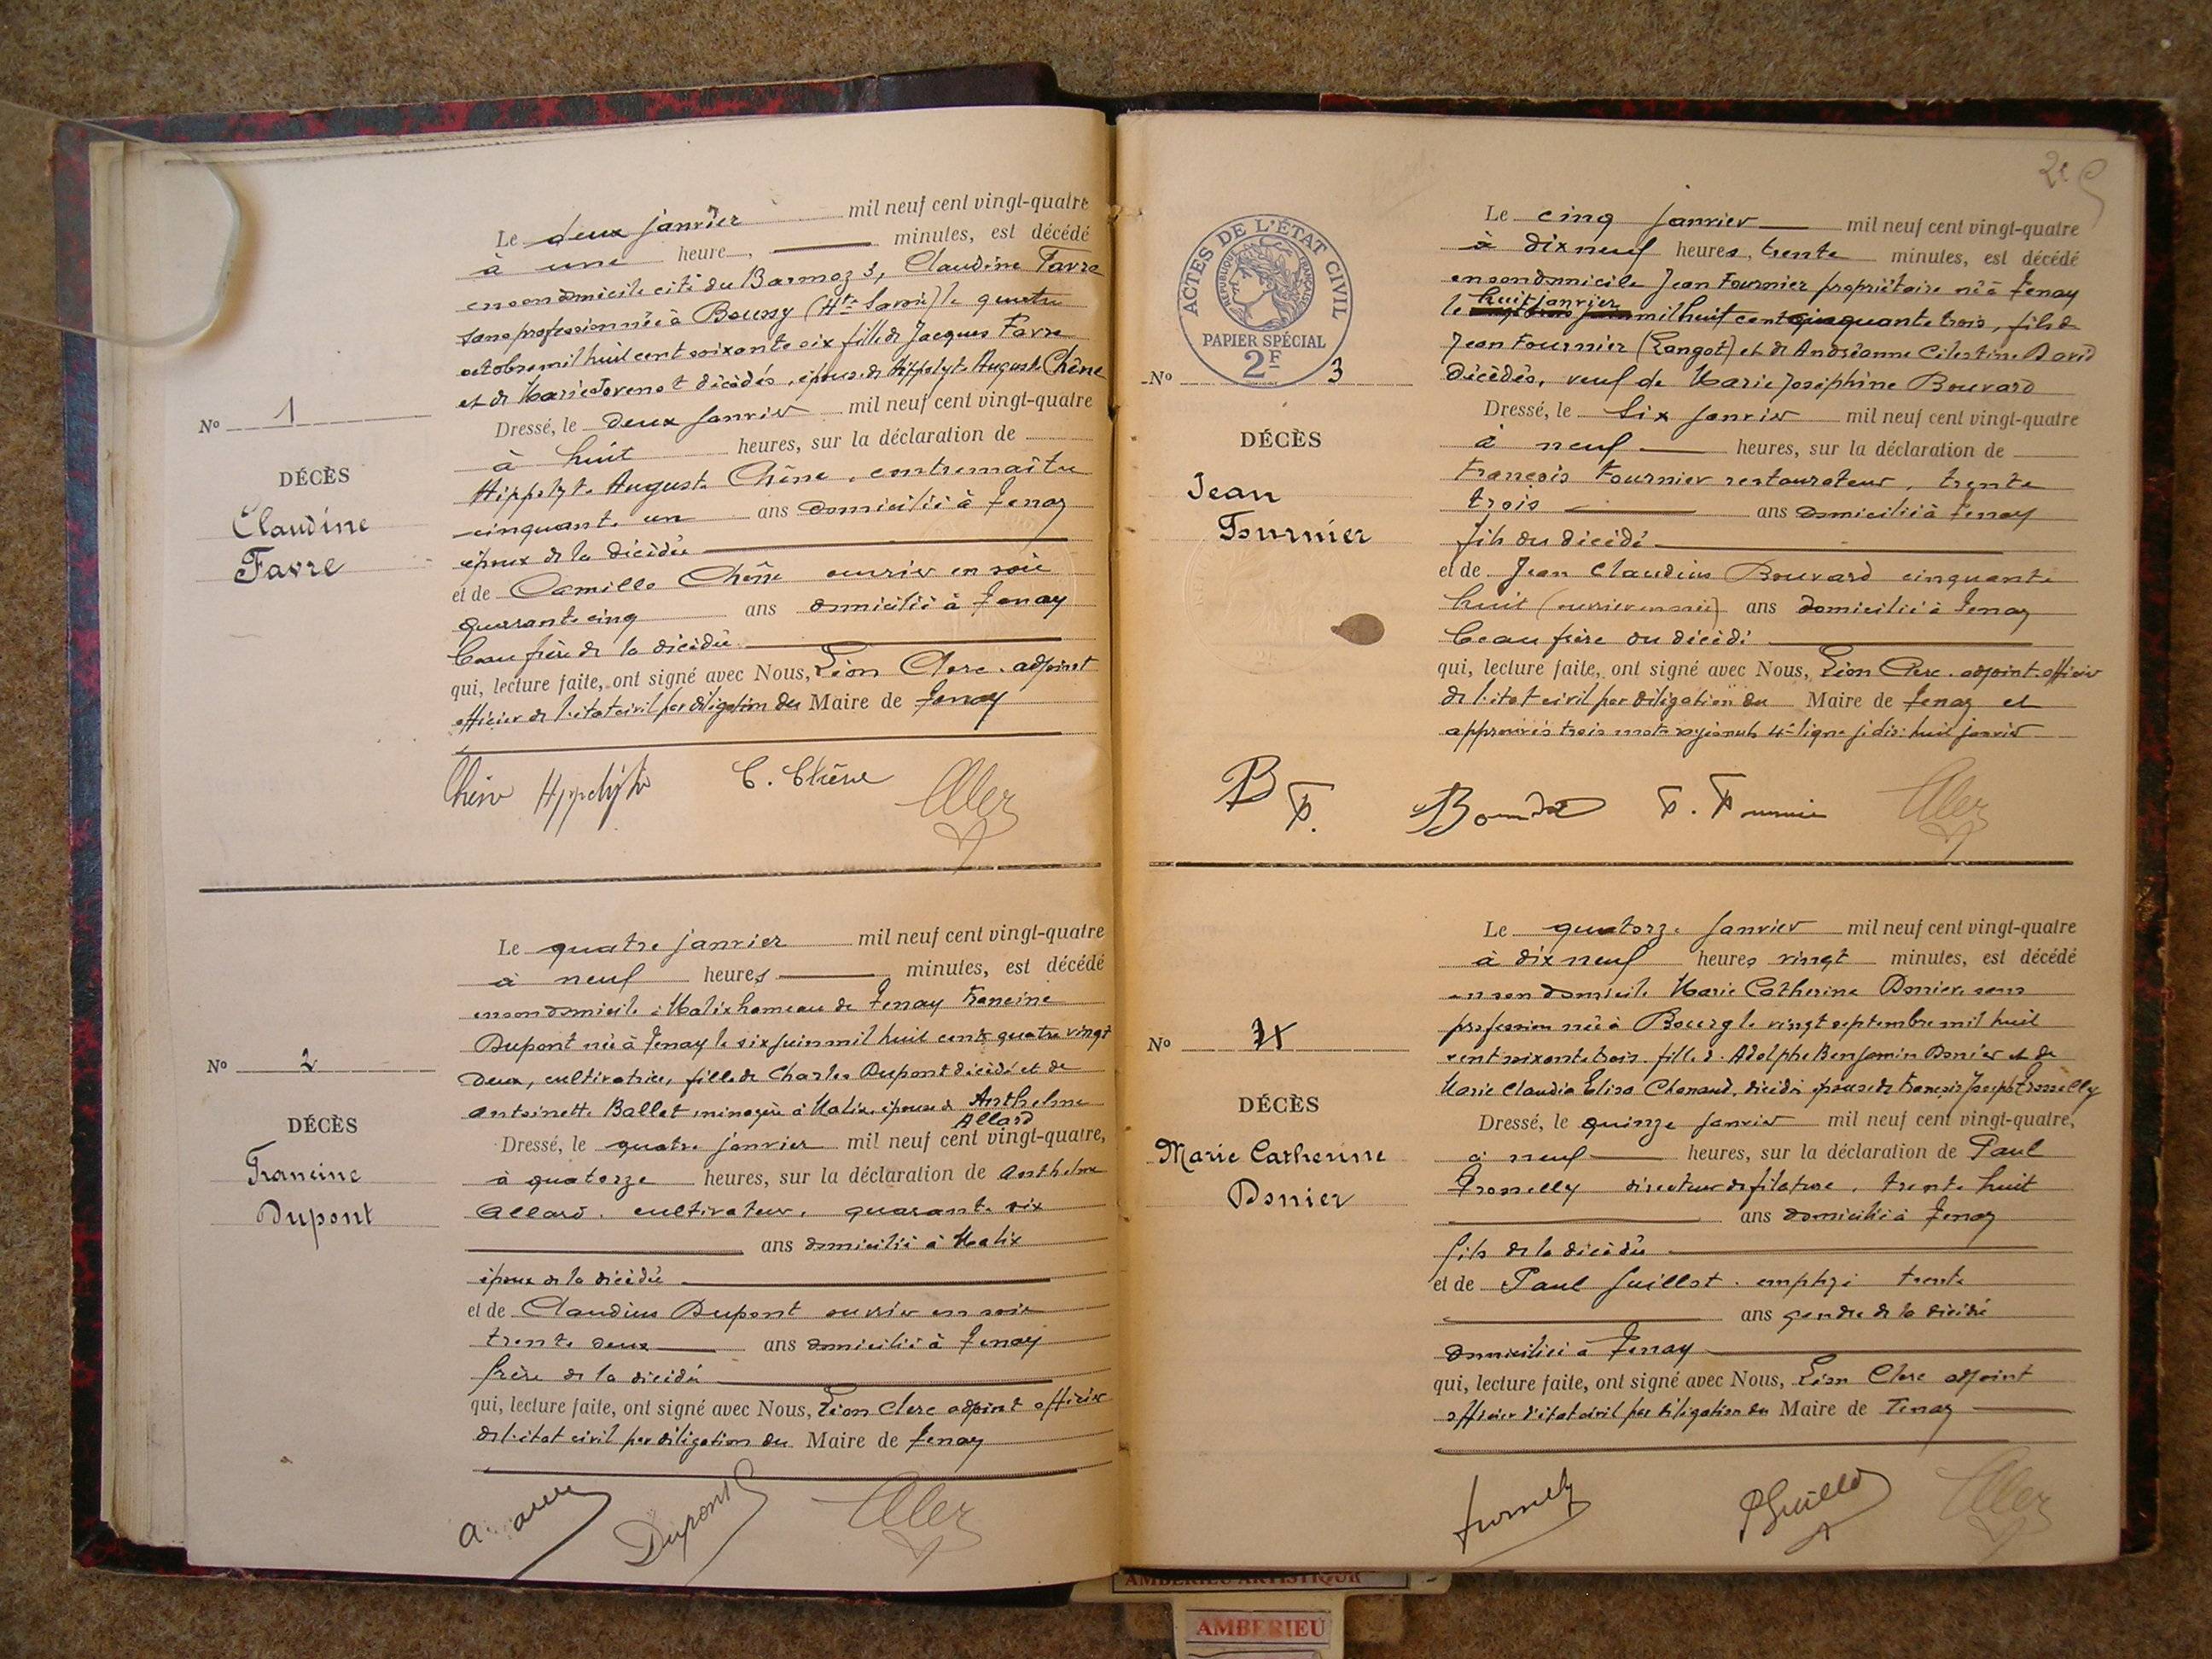 Le deux janvier mil neuf cent vingt-quatre
à une heure, minutes, est décédé
en son domicile cité du Barmoz 3, Claudine Favre
sans profession née à Boussy (Hte Savoie) le quatre
octobre mil huit cent soixante six fille de Jacques Favre
et de Marie décédés, épouse de Hippolyte Auguste Chêne
No 1
Dressé, le deux janvier mil neuf cent vingt-quatre
à huit heures, sur la déclaration de
DÉCÈS
Hippolyte Auguste Chêne, contremaître
Claudine
cinquante un ans domicilié à Tenay
Favre
époux de la décédée
et de Camille Chêne ouvrier en soie
quarante cinq ans domicilié à Tenay
beau frère de la décédée
qui, lecture faite, ont signé avec Nous, Léon Clerc. adjoint
officier de l'état civil par délégation du Maire de Tenay
Chêne Hippolyte C. Chêne Clerc
Le quatre janvier mil neuf cent vingt-quatre
à neuf heures minutes, est décédé
en son domicile à Malix hameau de Tenay Francine
Dupont née à Tenay le six juin mil huit cent quatre vingt
No 2
deux, cultivatrice, fille de Charles Dupont décédé et de
Antoinette Ballet ménagère à Malix épouse de Anthelme
Allard
DÉCÈS
Dressé, le quatre janvier mil neuf cent vingt-quatre,
Francine
à quatorze heures, sur la déclaration de Anthelme
Dupont
Allard. cultivateur, quarante six
ans domicilié à Malix
époux de la décédée
et de Claudius Dupont ouvrier en soie
trente deux ans domicilié à Tenay
frère de la décédée
qui, lecture faite, ont signé avec Nous, Léon Clerc adjoint officier
de l'état civil par délégation du Maire de Tenay
Dupont Clerc
ACTES DE L'ÉTAT CIVIL
RÉPUBLIQUE FRANÇAISE
PAPIER SPÉCIAL
2F
Le cinq janvier mil neuf cent vingt-quatre
à dix neuf heures, trente minutes, est décédé
en son domicile Jean Fournier propriétaire né à Tenay
huit janvier
le mil huit cent cinquante trois, fils de
Jean Fournier (Langot) et de Andréanne Célestine David
No 3
décédés, veuf de Marie Joséphine Bouvard
Dressé, le six janvier mil neuf cent vingt-quatre
DÉCÈS
à neuf heures, sur la déclaration de
Jean
François Fournier restaurateur, trente
trois ans domicilié à Tenay
Fournier
fils du décédé
et de Jean Claudius Bouvard cinquante
huit (ouvrier en soie) ans domicilié à Tenay
beau frère du décédé
qui, lecture faite, ont signé avec Nous, Léon Clerc. adjoint. officier
de l'état civil par délégation du Maire de Tenay et
approuvés trois mots 4e ligne huit janvier
B F. Bouvard F. Fournier Clerc
Le quatorze janvier mil neuf cent vingt-quatre
à dix neuf heures vingt minutes, est décédé
en son domicile Marie Catherine Donier sans
No 4
profession née à Bourg le vingt septembre mil huit
cent soixante trois. fille d'Adolphe Benjamin Donier et de
Marie Claudia Elisa Chanaud, décédés épouse de François Joseph
DÉCÈS
Dressé, le quinze janvier mil neuf cent vingt-quatre,
Marie Catherine
à neuf heures, sur la déclaration de Paul
Donier
directeur de filature, trente huit
ans domicilié à Tenay
fils de la décédée
et de Paul Guillot. employé trente
ans gendre de la décédée
domicilié à Tenay
qui, lecture faite, ont signé avec Nous, Léon Clerc adjoint
officier d'état civil par délégation du Maire de Tenay
PGuillot Clerc
AMBERIEU ARTISTIQUE
AMBERIEU